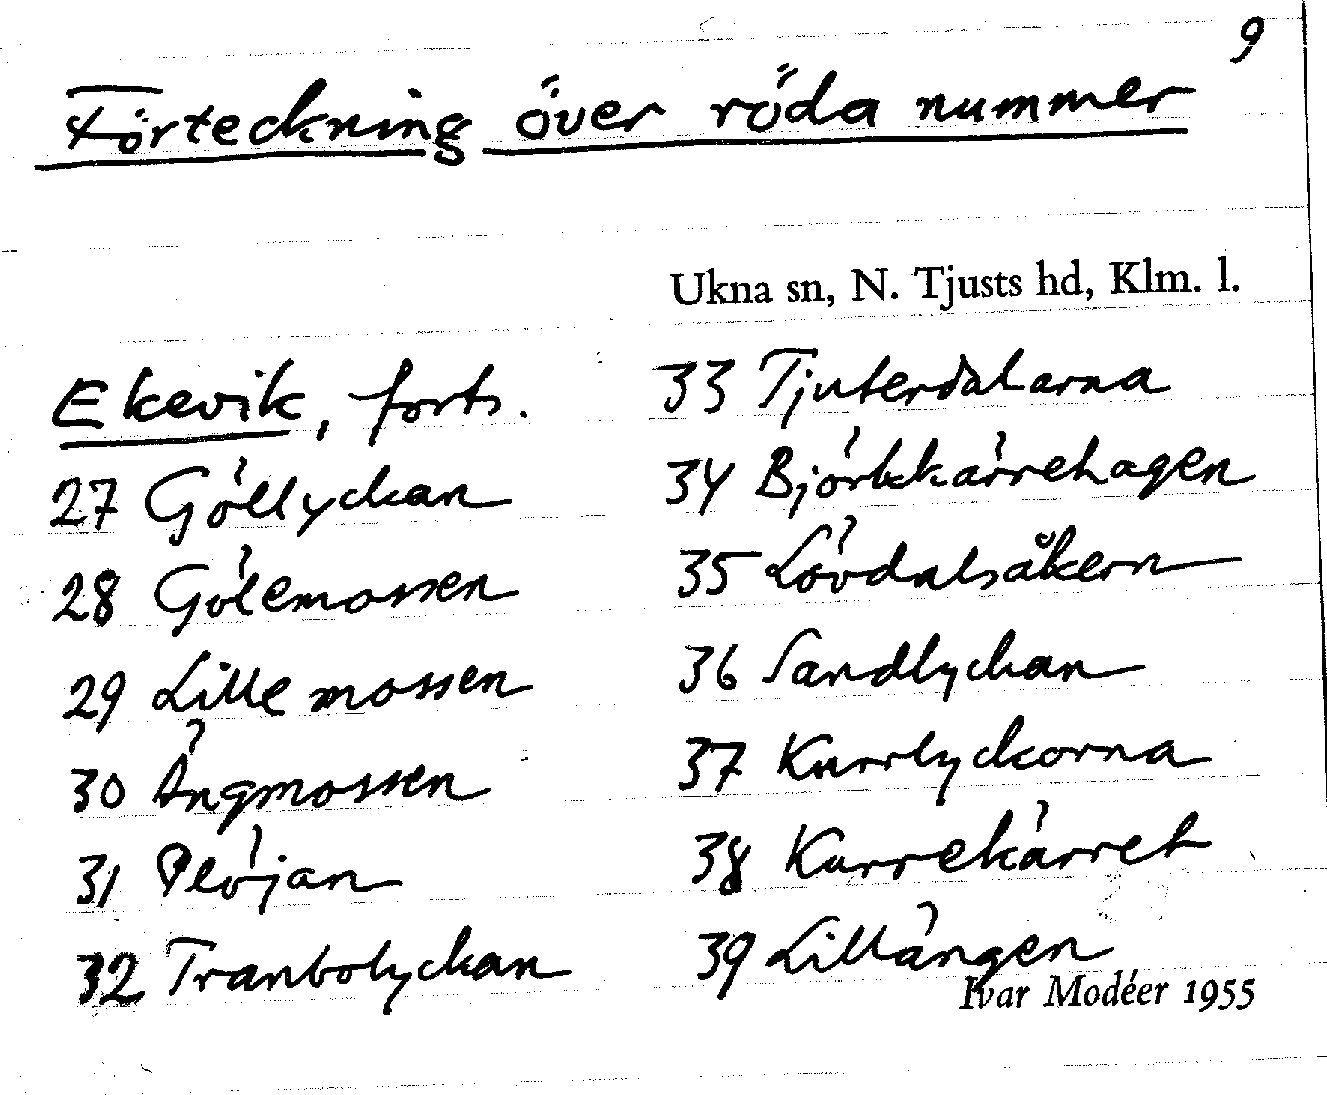 9
Förteckning över röda nummer
Ukna sn, N. Tjusts hd, Klm. l.
Ekevik, forts.
27 Göllyckan
28 Gölemossen
29 Lillemossen
30 Ängmossen
31 Plöjan
32 Tranbolyckan
33 Tjuterdalarna
34 Björkkärrehagen
35 Lövdalsåkern
36 Sandlyckan
37 Kurrlyckorna
38 Kurrekärret
39 Lillängen
Ivar Modéer 1955